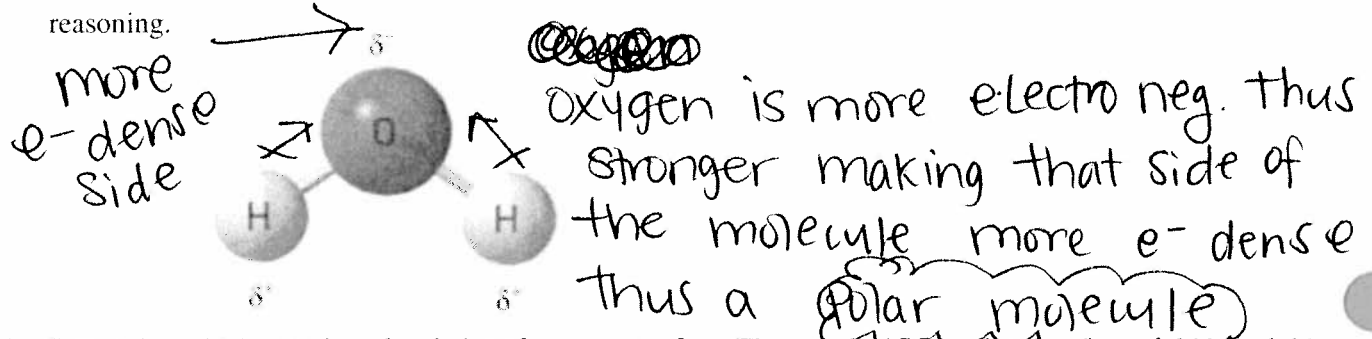 reasoning.
more
e- dense
side
δ-
O
H
H
δ+
δ+
oxygen is more electro neg. thus
stronger making that side of
the molecule more e- dense
thus a polar molecule